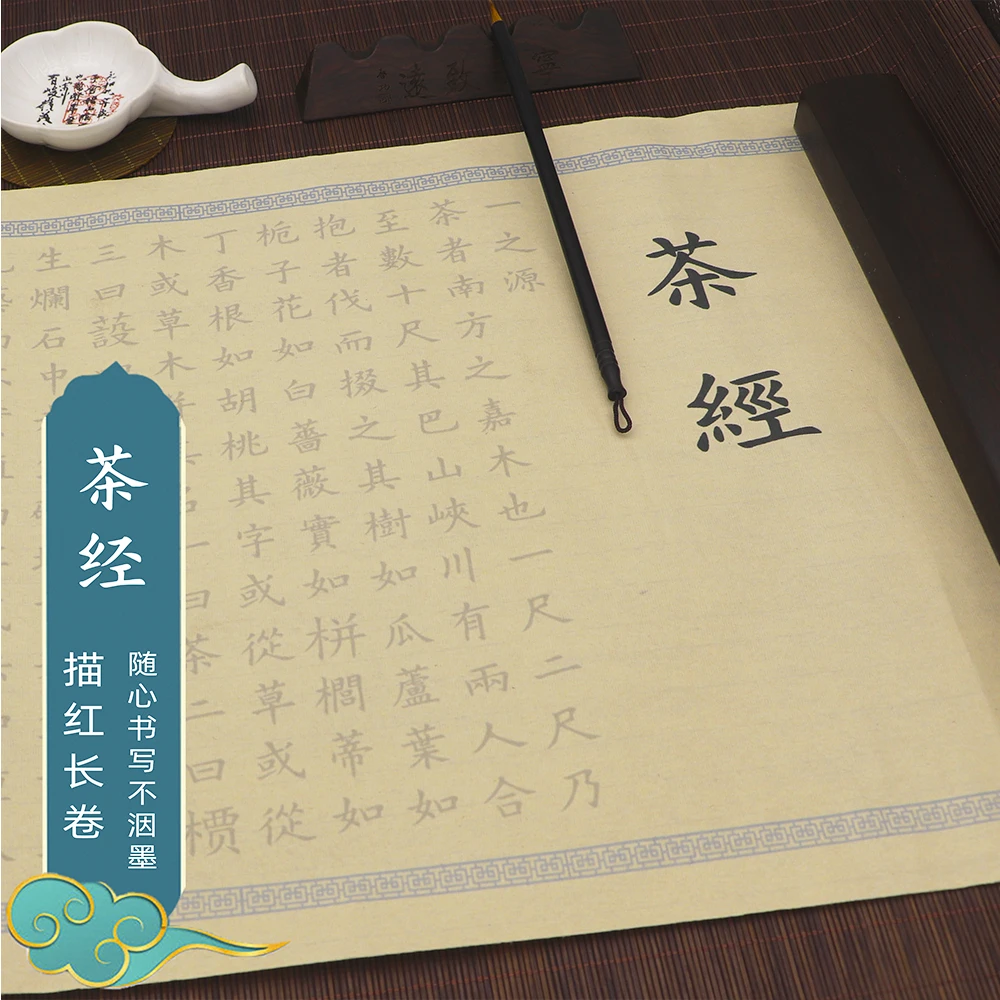 茶經
一之源
茶者南方之嘉木也一尺二尺乃
至數十尺其巴山峽川有兩人合
抱者伐而掇之其樹如瓜蘆葉如
梔子花如白薔薇實如栟櫚蒂如
丁香根如胡桃其字或從草或從
木或草木一曰茶二曰
三曰蔎
生爛石中
茶经
随心书写不洇墨
描红长卷